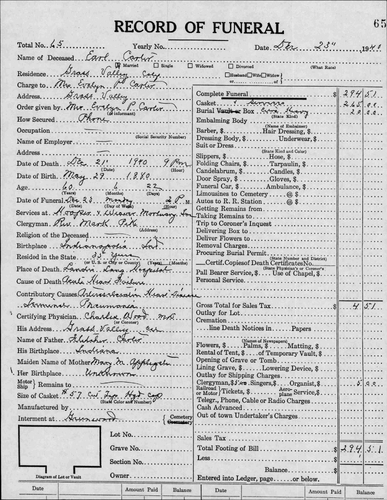 RECORD OF FUNERAL
65
Total No. 65 Yearly No. Date Dec 23" 1940
Name of Deceased Earl Carter
Married Single Widowed Divorced (What Race)
Residence Grass Valley Husband Wife Widow
Charge to Mrs Evelyn P Carter
Address Grass Valley
Order given by Mrs Evelyn P. Carter
How Secured Phone
Occupation
(Social Security Number)
Name of Employer
Address
Date of Death Dec 21 1940 9 P.M.
Date of Birth May 29 1880
Age 60 6 22
(Years) (Months) (Days)
Funeral Date Dec 23 Monday 2 P.M.
Services at Hooper & Weaver Mortuary
Clergyman Rev. Mark
Religion of Deceased
Birthplace Indianapolis Ind
Resided in the State 35 years
Place of Death Hospital
Cause of Death Acute Heart Failure
Contributory Causes Arteriosclerotic Heart Disease
Pneumonia
Certifying Physician Charles Wood M.D.
His Address Grass Valley Cal
Name of Father Fletcher Carter
His Birthplace Indiana
Maiden Name of Mother Mary M. Applegate
Her Birthplace Unknown
Motor Ship Remains to
Size of Casket
(State Color and Number)
Manufactured by
Interment at Greenwood Cemetery
Lot No.
Grave No.
Section No.
Owner
Diagram of Lot or Vault
Complete Funeral 294 51
Casket 265 00
Burial Vault or Box 20 00
(State Kind)
Embalming Body
(Name of Embalmer)
Barber, Hair Dressing,
Dressing Body, Underwear,
Suit or Dress
(State Kind and Color)
Slippers, Hose,
Folding Chairs, Tarpaulin,
Candelabrum, Candles,
Door Spray, Gloves,
Funeral Car, Ambulance,
Limousines to Cemetery @
Autos to R. R. Station @
Getting Remains from
Taking Remains to
Trip to Coroner's Inquest
Delivering Box to
Deliver Flowers to
Removal Charges
Procuring Burial Permit
(State Number and District)
Certif. Copies of Death Certificate
(State Physician's or Coroner's)
Pall Bearer Service, Use of Chapel,
Personal Service
Gross Total for Sales Tax 4 51
Outlay for Lot
Cremation
line Death Notices in Papers
(Names of Newspapers)
Flowers, Palms, Matting,
Rental of Tent, of Temporary Vault,
Opening of Grave or Tomb
Lining Grave, Evergreen,
Outlay for Shipping Charges
Clergyman, Singers, Organist, 5 00
Railroad or Motor Tickets, Aeroplane Service,
Telegr., Phone, Cable or Radio Charges
Cash Advanced
Out of town Undertaker's Charges
Sales Tax
Total Footing of Bill 294 51
Less
Balance
Entered into Ledger, page or below.
Date Amount Paid Balance Date Amount Paid Balance